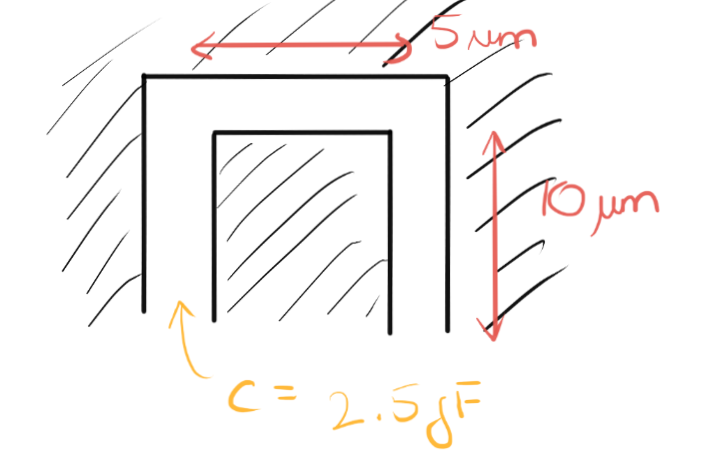 5 μm
10 μm
C = 2.5 fF